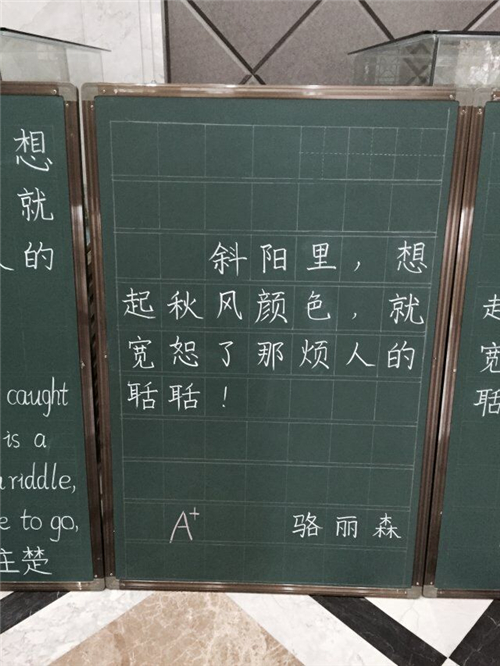 想
就
人的
caught
is a
riddle,
e to go,
庄楚
斜阳里，想
起秋风颜色，就
宽恕了那烦人的
聒聒！
A+
骆丽森
起
宽
聒